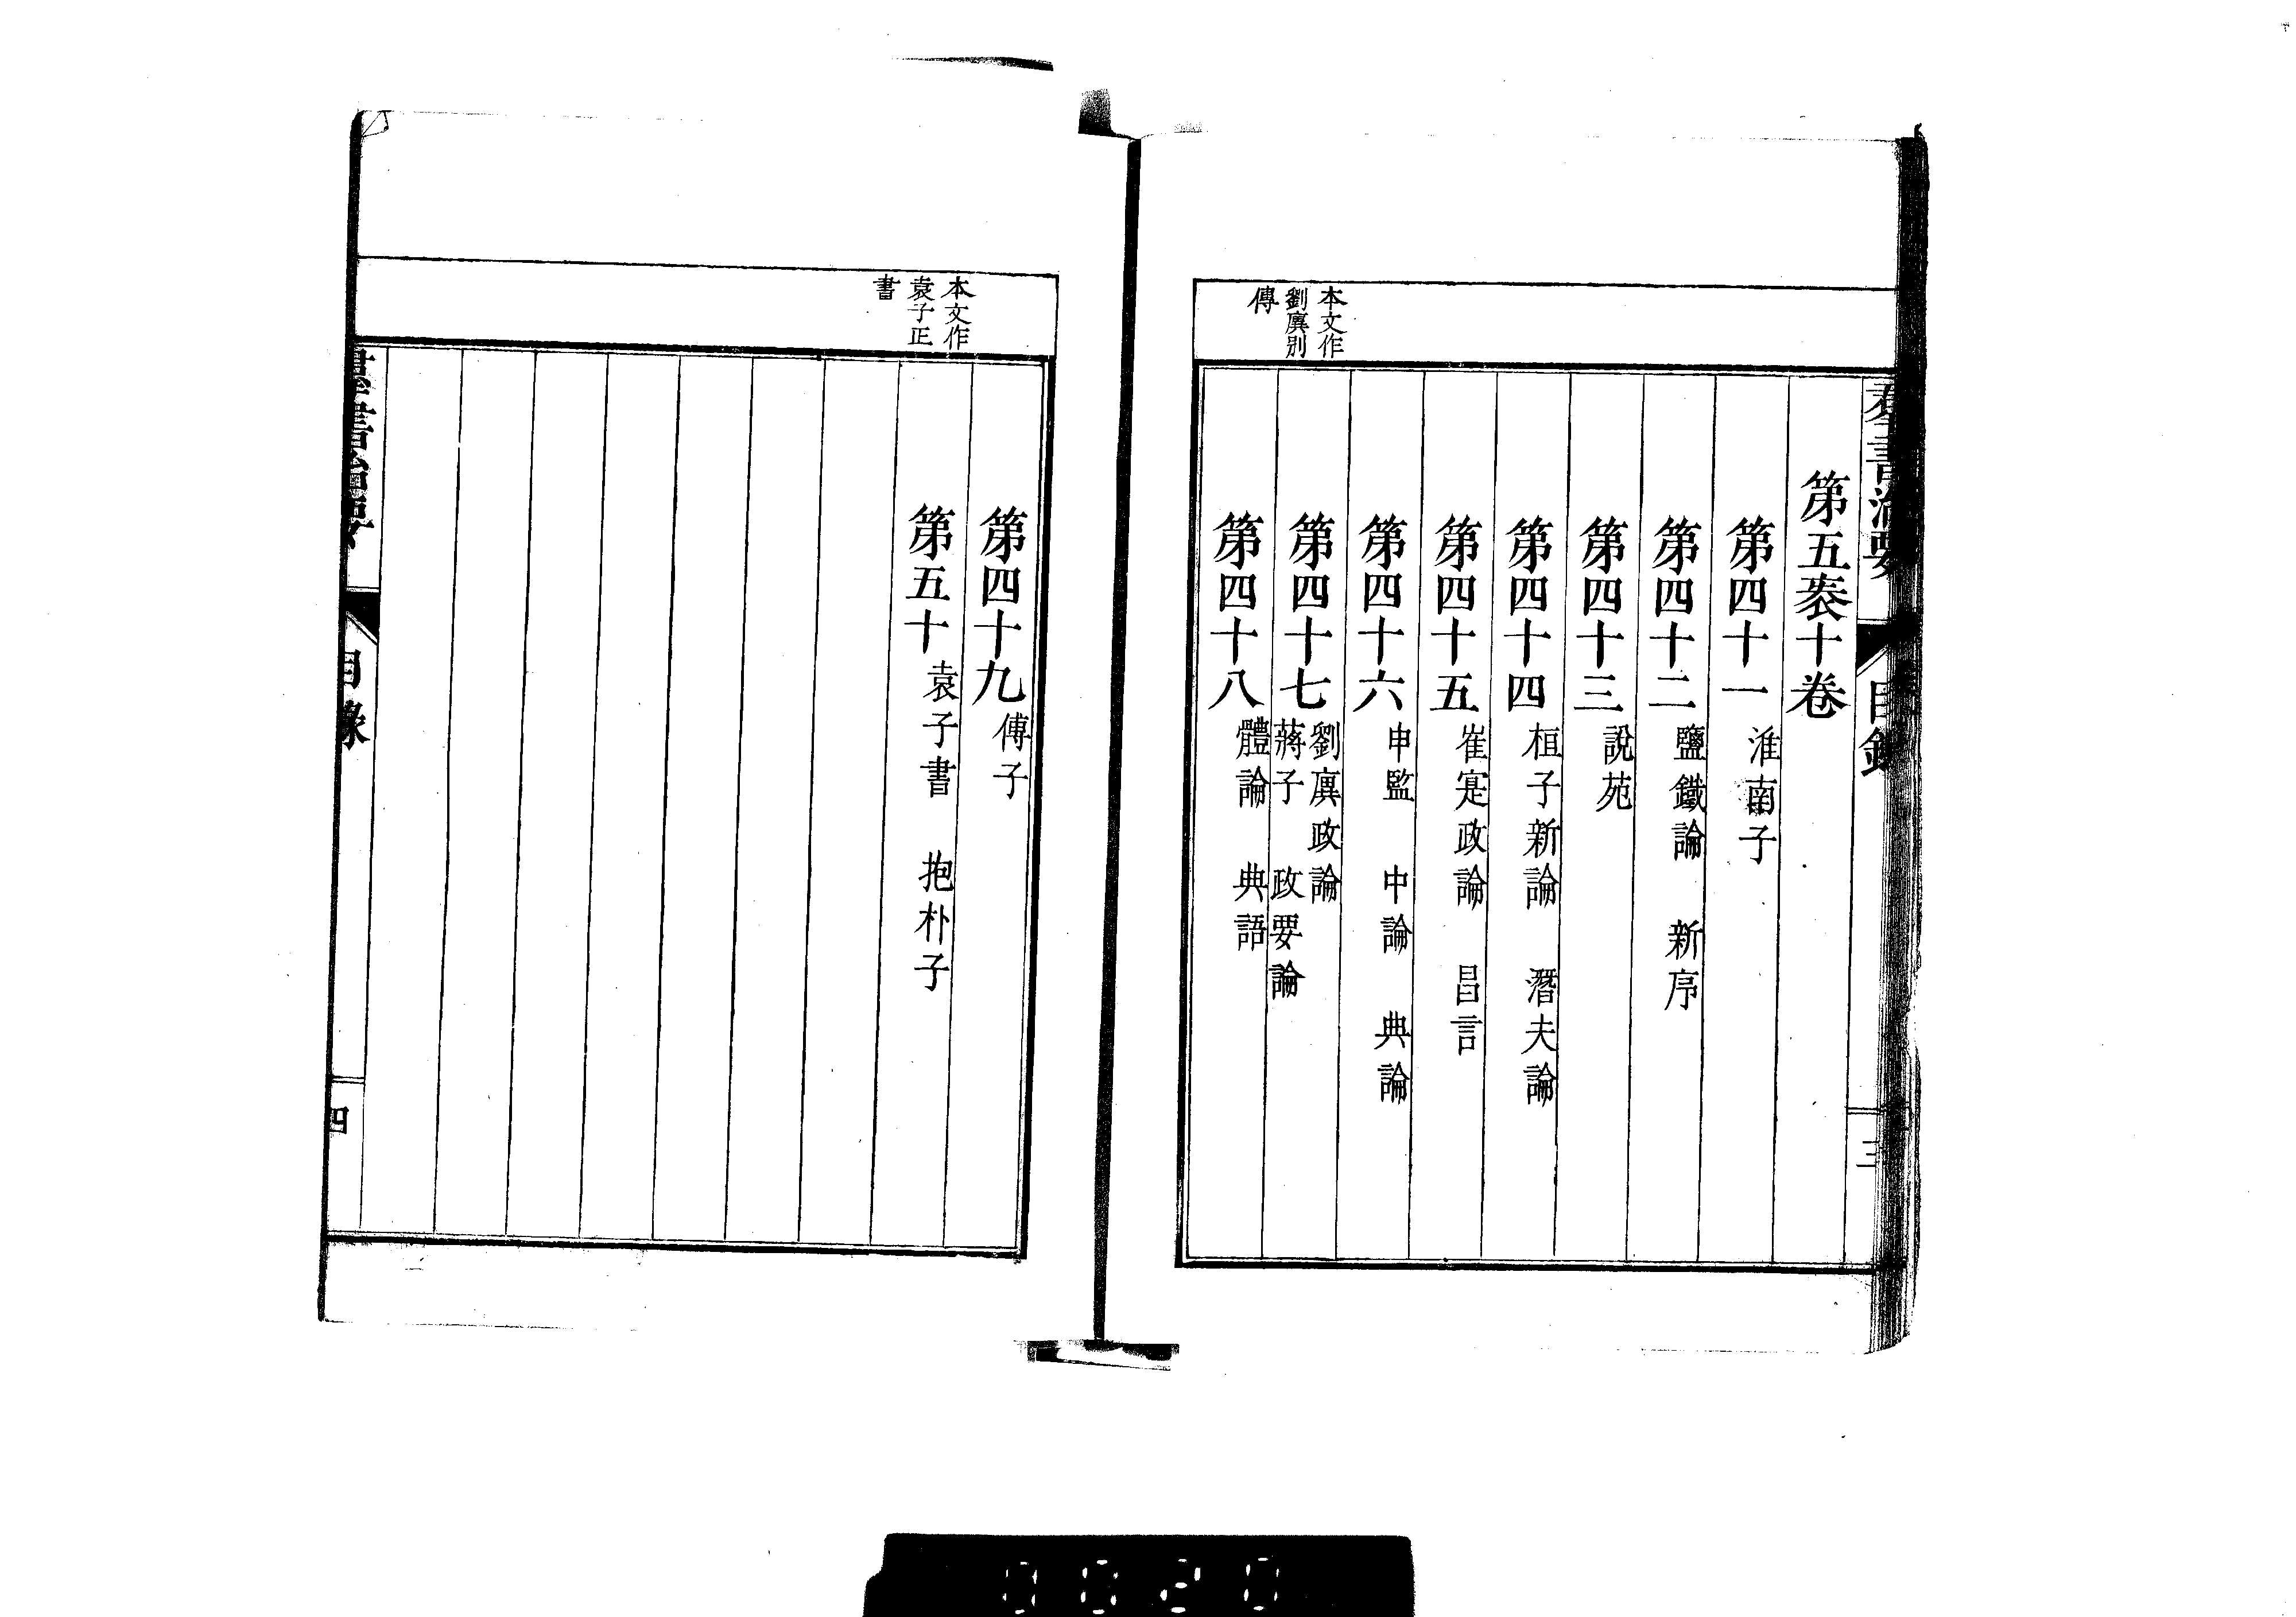 羣書治要
目錄
三
本文作
劉廙別
傳
第五袠十卷
第四十一 淮南子
第四十二 鹽鐵論 新序
第四十三 說苑
第四十四 桓子新論 潛夫論
第四十五 崔寔政論 昌言
第四十六 申監 中論 典論
第四十七 劉廙政論
蔣子 政要論
第四十八 體論 典語
本文作
袁子正
書
第四十九 傅子
第五十 袁子書 抱朴子
羣書治要
目錄
四
0020